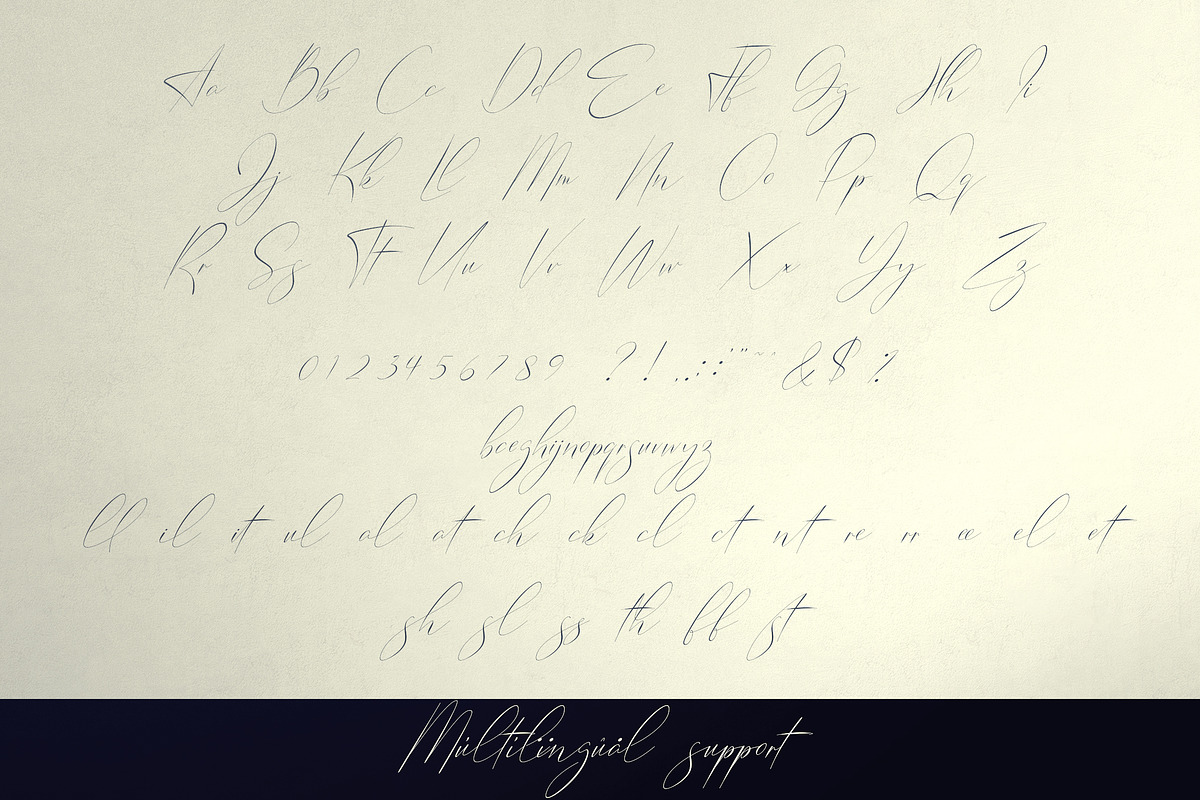 Aa Bb Cc Dd Ee Ff Gg Hh Ii
Jj Kk Ll Mm Nn Oo Pp Qq
Rr Ss Tt Uu Vv Ww Xx Yy Zz
0123456789 ?! & $
ll il it ul al at ch ck cl ct nt re rr œ el et
sh sl ss th ff st
Múltilíngûál support